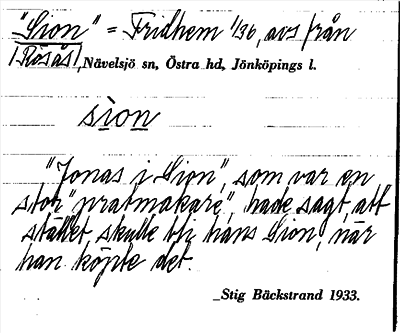 "Sion" = Fridhem 1/36, avs från
Rösås, Nävelsjö sn, Östra hd, Jönköpings l.
sìon
"Jonas i Sion", som var en
stor "pratmakare", hade sagt, att
stället skulle bli hans Sion, när
han köpte det.
Stig Bäckstrand 1933.